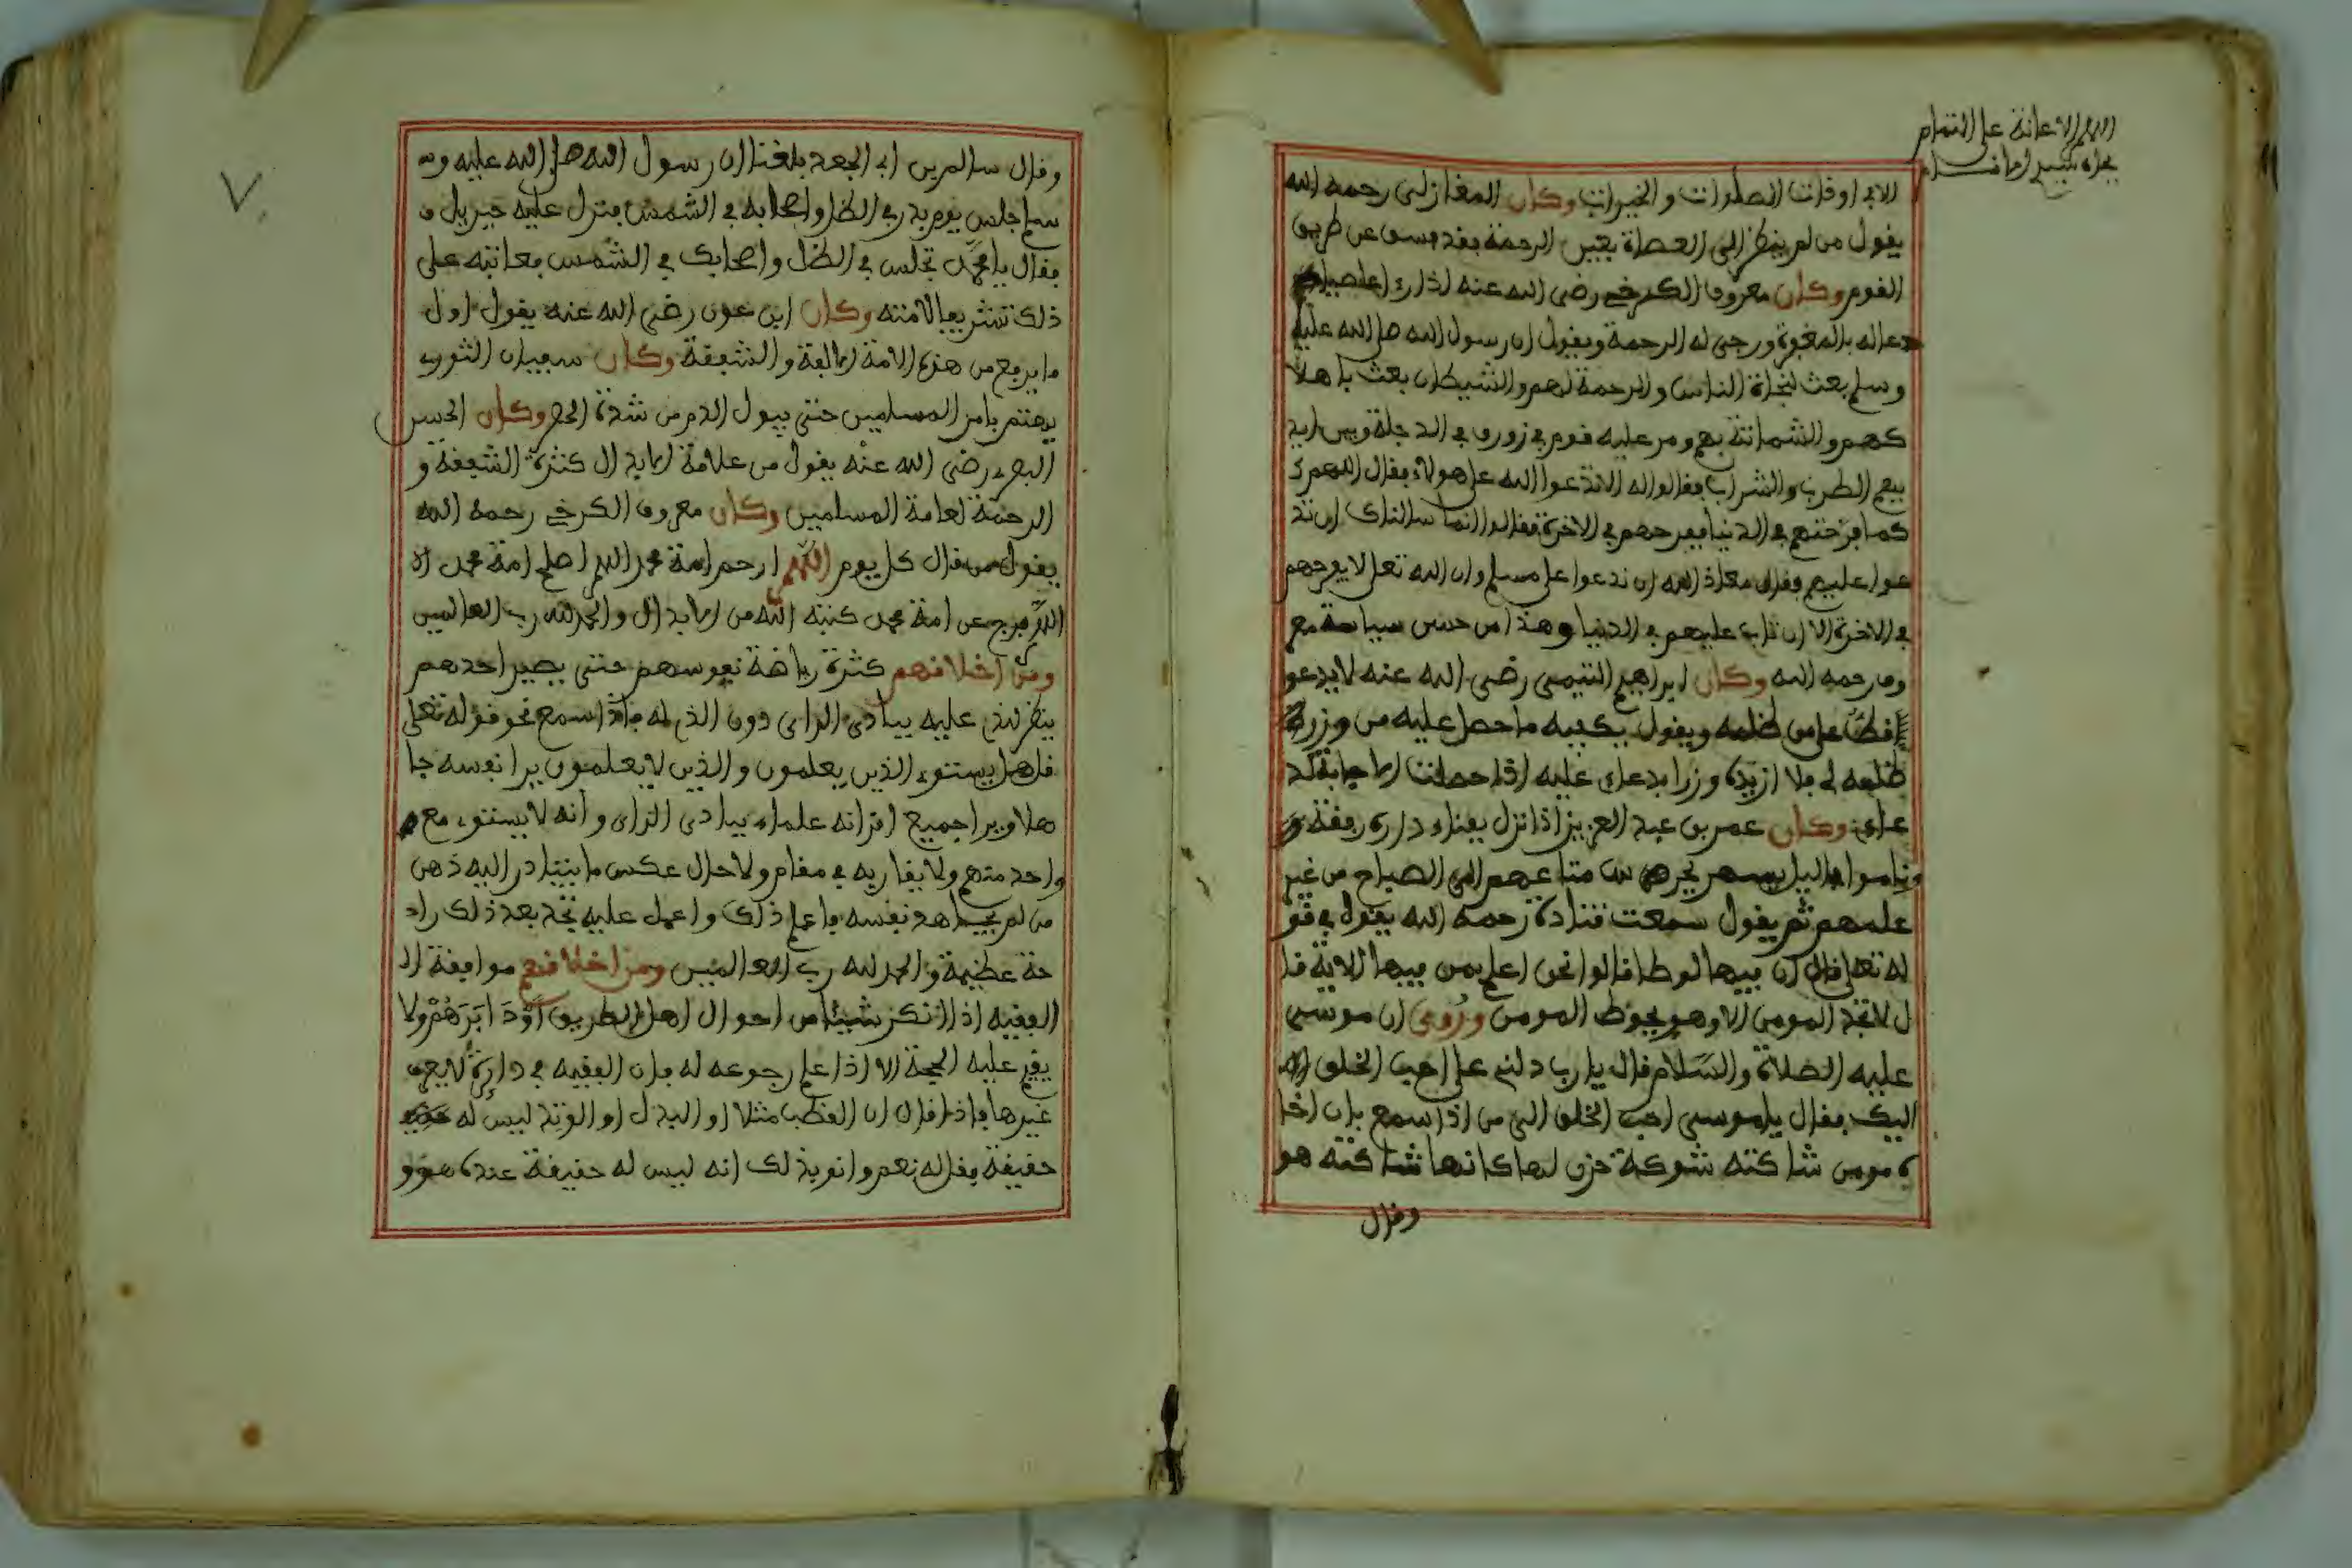 اللهم الاعانة على التمام
بجاه سيد
الا في اوقات الصلوات والخيرات وكان المغازلى رحمه الله
يقول من لم ينظر الى العصاة بعين الرحمة فقد خرج عن طريق
القوم وكان معروف الكرخي رضي الله عنه اذا راى عاصيا
دعا له بالمغفرة ورجى له الرحمة ويقول ان رسول الله صلى الله عليه
وسلم بعث لنجاة الناس والرحمة لهم والشيطان بعث باهلا
كهم والشماتة بهم ومر عليه قوم في زورق في الدجلة وبين ايد
يهم الطرب والشراب فقالوا له الا تدعوا الله على هولاء فقال اللهم كـ
كما فرحتهم في الدنيا ففرحهم في الاخرة فقالوا انما سالناك ان تد
عوا عليهم وقال معاذ الله ان ندعوا على مسلم وان الله تعلى لا يفرحهم
في الاخرة الا ان تاب عليهم في الدنيا وهذا من حسن سياسة مع
رحمه الله وكان ابراهيم التيمي رضي الله عنه لا يدعو
قط على من ظلمه ويقول يكفيه ما حصل عليه من وزر
ظلمه لي فلا ازيده وزرا بدعاى عليه اذا حصلت الاجابة لد
عاى وكان عمر بن عبد العزيز اذا نزل بفناء داره رفقة و
وناموا باليل يسهر يحرس متاعهم الى الصباح من غير
علمهم ثم يقول سمعت قتادة رحمه الله يقول في قو
له تعلى قال ان فيها لوطا قالوا نحن اعلم بمن فيها الاية قا
ل لا تجد المومن الا وهو يحوط المومن وروى ان موسى
عليه الصلاة والسلام قال يا رب دلني على احب الخلق
اليك فقال يا موسى احب الخلق الي من اذا سمع بان اخا
ه مومن شاكته شوكة حزن لها كانها شاكته هو
وقال
وقال سالم بن ابي الجعد بلغنا ان رسول الله صلى الله عليه وسـ
سلم جلس يوم بدر في الظل واصحابه في الشمس فنزل عليه جبريل و
فقال يا محمد تجلس في الظل واصحابك في الشمس فعاتبه على
ذلك تشريعا لامته وكان ابن عون رضي الله عنه يقول اول
ما يرفع من هذه الامة الالفة والشفقة وكان سفيان الثوري
يهتم بامر المسلمين حتى يبول الدم من شدة الحصر وكان الحسن
البصري رضي الله عنه يقول من علامة الابدال كثرة الشفقة و
الرحمة لعامة المسلمين وكان معروف الكرخي رحمه الله
يقول من قال كل يوم اللهم ارحم امة محمد اللهم اصلح امة محمد
اللهم فرج عن امة محمد كتبه الله من الابدال والحمد لله رب العالمين
ومن اخلاقهم كثرة رياضة نفوسهم حتى يصير احدهم
ينظر لذى عليه ببادى الراى دون الذى له فاذا سمع نحو قوله تعلى
قل هل يستوى الذين يعلمون والذين لا يعلمون يرا نفسه جا
هلا ويرا جميع اقرانه علماء ببادى الراى وانه لا يستوى مع
واحد منهم ولا يقاربه في مقام ولا حال عكس ما يتبادر اليه ذهن
من لم يجاهد نفسه فاعلم ذلك واعمل عليه تجد بعد ذلك را
حة عظيمة والحمد لله رب العالمين ومن اخلاقهم موافقة ا
الفقيه اذا انكر شيئا من احوال اهل الطريق ولا
يقيم عليه الحجة الا اذا علم رجوعه له فان الفقيه في دايرة لا يعرف
غيرها فاذا قال ان القطب مثلا او البدل او الوتد ليس له
حقيقة فقال له نعم وانو بذلك انه ليس له حقيقة عنده هو و